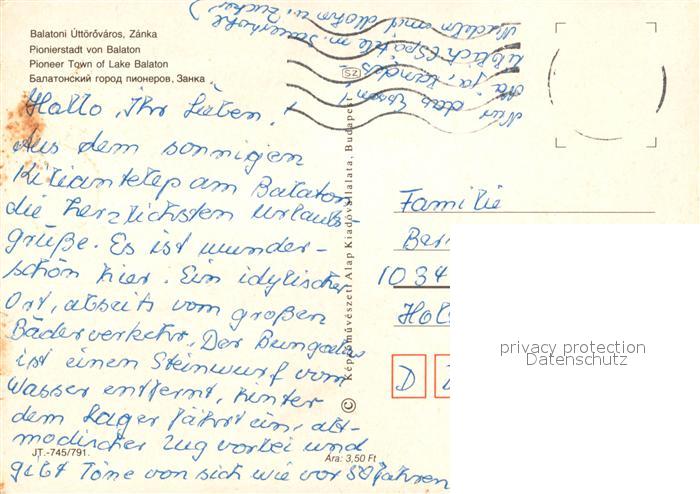 Balatoni Úttörőváros, Zánka
Pionierstadt von Balaton
Pioneer Town of Lake Balaton
Балатонский город пионеров, Занка
Hallo, Ihr Lieben!
Aus dem sonnigen
Kiliantelep am Balaton
die herzlichsten Urlaubs-
grüße. Es ist wunder-
schön hier. Ein idyllischer
Ort, abseits vom großen
Bäderverkehr. Der Bungalow
ist einen Steinwurf vom
Wasser entfernt, hinter
dem Lager fährt ein alt-
modischer Zug vorbei und
gibt Töne von sich wie vor 50 Jahren
Nur das Essen!
Na ja, landes-
üblich Spätzle m. Sauerkohl
Nudeln mit Mohn u. Zucker
JT.-745/791.
Ára: 3,50 Ft
© Képzőművészeti Alap Kiadóvállalata, Budapest
SZ
Familie
Ber
1034
Hol
D
privacy protection
Datenschutz